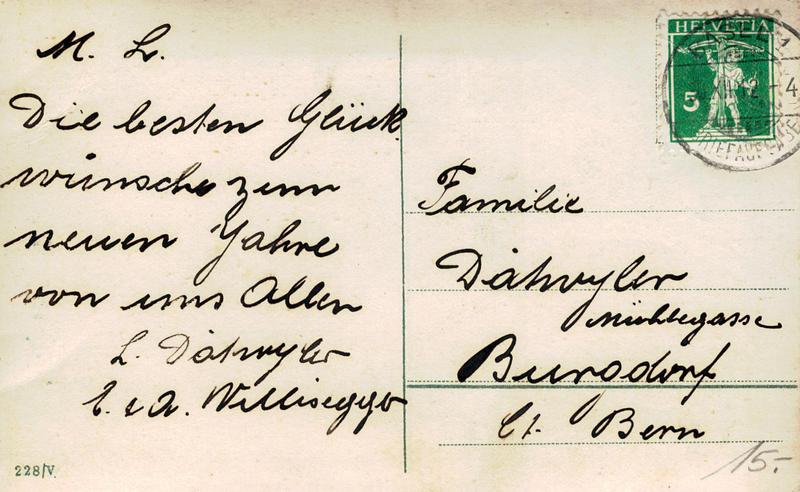 M. L.
Die besten Glück
wünsche zum
neuen Jahre
von uns Allen
L. Dätwyler
E. & A. Willisegger
228/V.
HELVETIA
5
BASEL 1
XII. 12 - 4
BRIEFAUFGABE
Familie
Dätwyler
Mühlegasse
Burgdorf
Ct. Bern
15.-